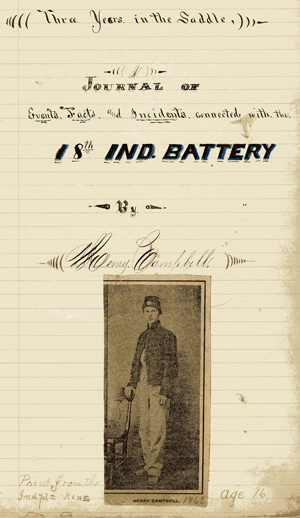 Three Years. in the Saddle,
A
JOURNAL OF
Events, Facts, and Incidents, connected with the
18th IND. BATTERY
By
Henry Campbell.
HENRY CAMPBELL. 1862 age 16
Print from the
Indpls News